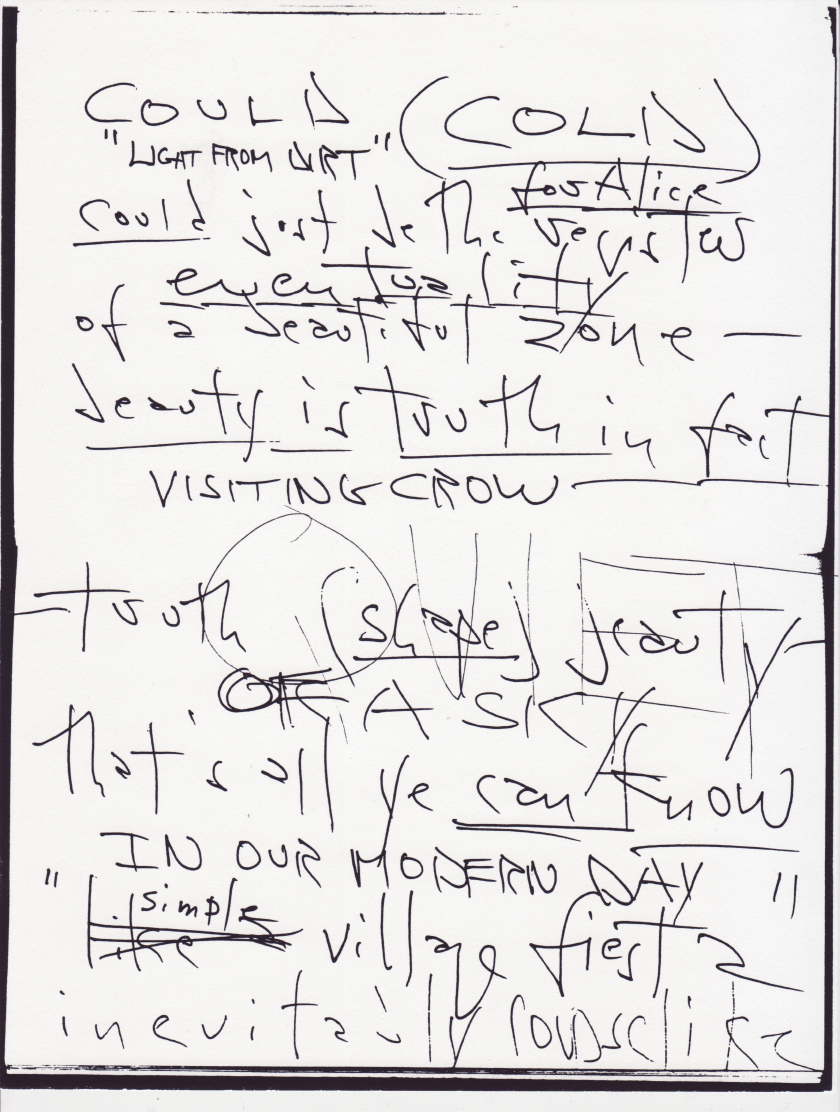 COULD (COLD)
"LIGHT FROM DIRT"
for Alice
could just be the register
eventuality
of a beautiful zone —
beauty is truth in fact
VISITING CROW —
— truth (shape) beauty —
OF A SKY
that's all ye can know
IN OUR MODERN DAY
" simple "
like village fiesta
inevitably